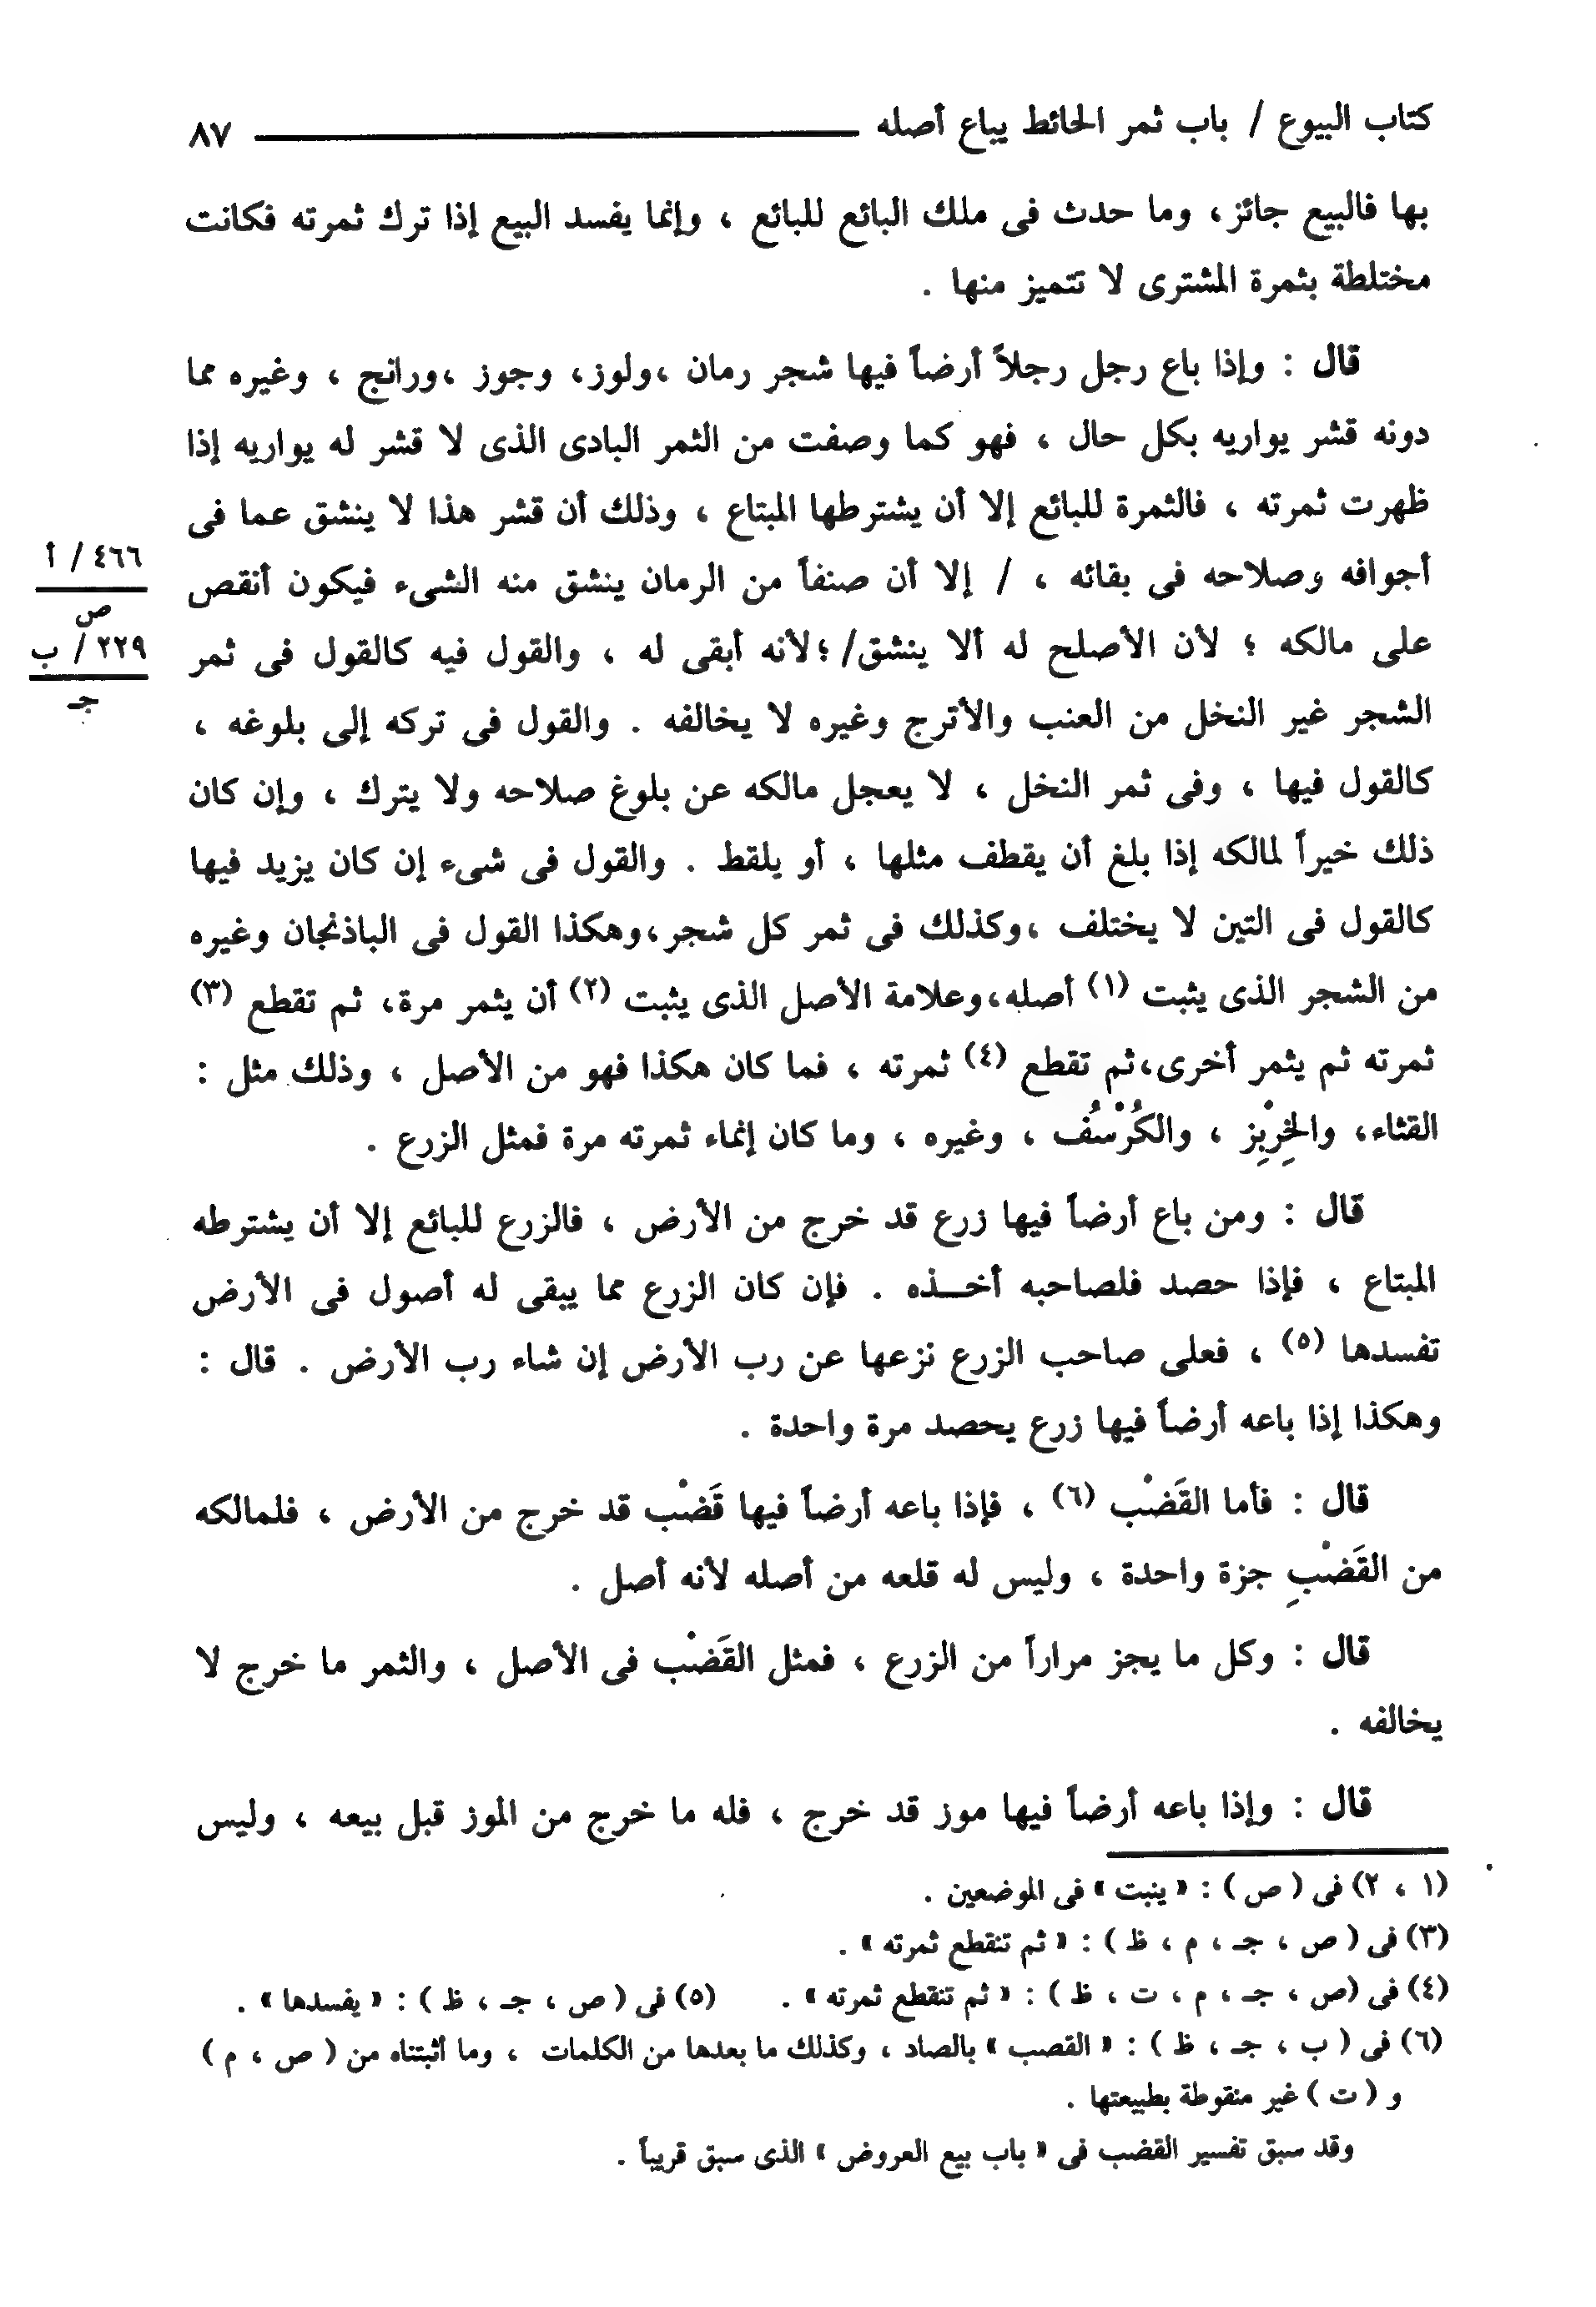 كتاب البيوع / باب ثمر الحائط يباع أصله ٨٧
بها فالبيع جائز، وما حدث فى ملك البائع للبائع ، وإنما يفسد البيع إذا ترك ثمرته فكانت
مختلطة بثمرة المشترى لا تتميز منها .
قال : وإذا باع رجل رجلاً أرضاً فيها شجر رمان ،ولوز، وجوز ،ورانج ، وغيره مما
دونه قشر يواريه بكل حال ، فهو كما وصفت من الثمر البادى الذى لا قشر له يواريه إذا
ظهرت ثمرته ، فالثمرة للبائع إلا أن يشترطها المبتاع ، وذلك أن قشر هذا لا ينشق عما فى
أجوافه وصلاحه فى بقائه ، / إلا أن صنفاً من الرمان ينشق منه الشىء فيكون أنقص
٤٦٦ / أ
ص
على مالكه ؛ لأن الأصلح له ألا ينشق/؛لأنه أبقى له ، والقول فيه كالقول فى ثمر
٢٢٩ / ب
جـ
الشجر غير النخل من العنب والأترج وغيره لا يخالفه . والقول فى تركه إلى بلوغه ،
كالقول فيها ، وفى ثمر النخل ، لا يعجل مالكه عن بلوغ صلاحه ولا يترك ، وإن كان
ذلك خيراً لمالكه إذا بلغ أن يقطف مثلها ، أو يلقط . والقول فى شىء إن كان يزيد فيها
كالقول فى التين لا يختلف ،وكذلك فى ثمر كل شجر،وهكذا القول فى الباذنجان وغيره
من الشجر الذى يثبت (١) أصله،وعلامة الأصل الذى يثبت (٢) أن يثمر مرة، ثم تقطع (٣)
ثمرته ثم يثمر أخرى،ثم تقطع (٤) ثمرته ، فما كان هكذا فهو من الأصل ، وذلك مثل :
القثاء، والخِرْبِز ، والكُرْسُف ، وغيره ، وما كان إنماء ثمرته مرة فمثل الزرع .
قال : ومن باع أرضاً فيها زرع قد خرج من الأرض ، فالزرع للبائع إلا أن يشترطه
المبتاع ، فإذا حصد فلصاحبه أخـــذه . فإن كان الزرع مما يبقى له أصول فى الأرض
تفسدها (٥) ، فعلى صاحب الزرع نزعها عن رب الأرض إن شاء رب الأرض . قال :
وهكذا إذا باعه أرضاً فيها زرع يحصد مرة واحدة .
قال : فأما القَضْب (٦) ، فإذا باعه أرضاً فيها قَضْب قد خرج من الأرض ، فلمالكه
من القَضْبِ جزة واحدة ، وليس له قلعه من أصله لأنه أصل .
قال : وكل ما يجز مراراً من الزرع ، فمثل القَضْب فى الأصل ، والثمر ما خرج لا
يخالفه .
قال : وإذا باعه أرضاً فيها موز قد خرج ، فله ما خرج من الموز قبل بيعه ، وليس
(١ ، ٢) فى ( ص ) : « ينبت » فى الموضعين .
(٣) فى ( ص ، جـ ، م ، ظ ) : « ثم تنقطع ثمرته » .
(٤) فى (ص ، جـ ، م ، ت ، ظ ) : « ثم تنقطع ثمرته » . (٥) فى ( ص ، جـ ، ظ ) : « يفسدها » .
(٦) فى ( ب ، جـ ، ظ ) : « القصب » بالصاد ، وكذلك ما بعدها من الكلمات ، وما أثبتناه من ( ص ، م )
و ( ت ) غير منقوطة بطبيعتها .
وقد سبق تفسير القضب فى « باب بيع العروض » الذى سبق قريباً .